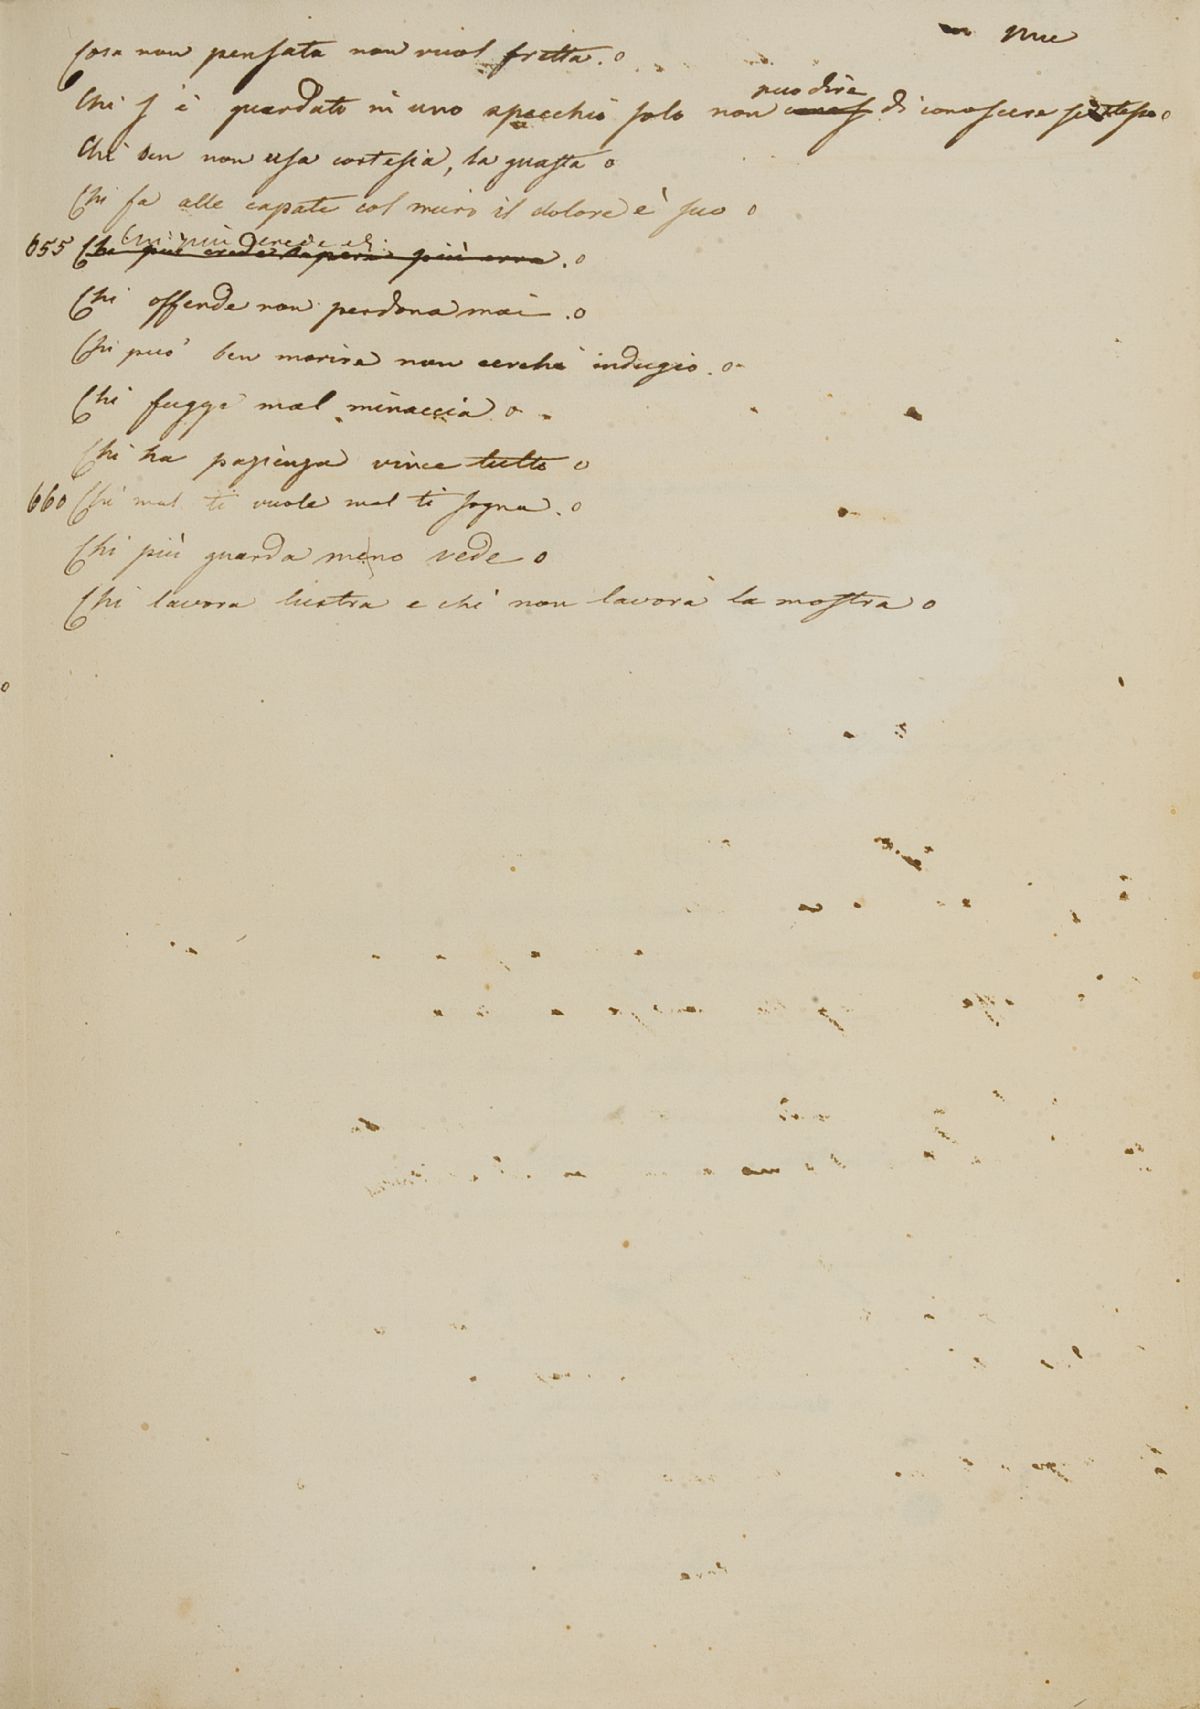 Cosa non pensata non vuol fretta. o
può dire
Chi s' è guardato in uno specchio solo non conos di conoscere se stesso o
Chi ben non usa cortesia, la guasta o
Chi fa alle capate col muro il dolore è suo o
Chi più crede
655 Chi più crede sapere più erra . o
Chi offende non perdona mai . o
Chi può ben morire non cerchi indugio . o
Chi fugge mal minaccia o
Chi ha pazienza vince tutto o
660 Chi mal ti vuole mal ti sogna . o
Chi più guarda meno vede o
Chi lavora lustra e chi non lavora la mostra o